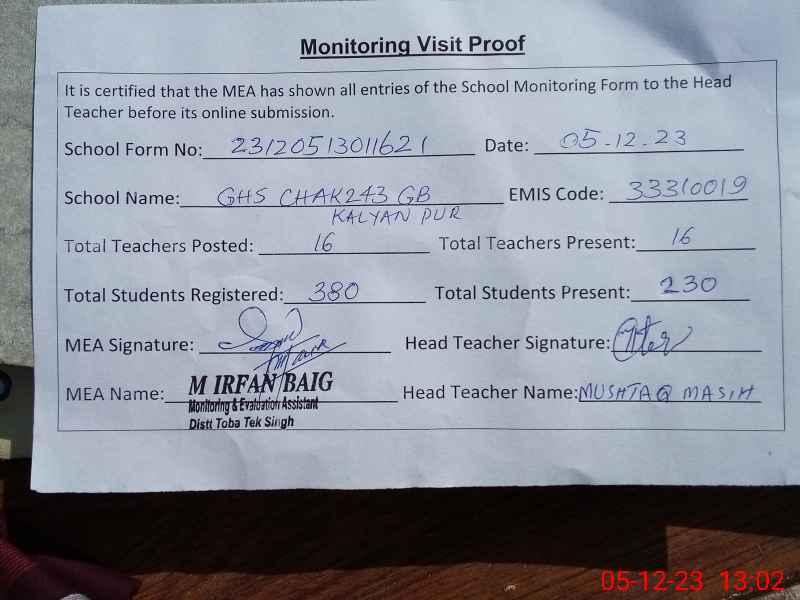 Monitoring Visit Proof
It is certified that the MEA has shown all entries of the School Monitoring Form to the Head
Teacher before its online submission.
School Form No: 23120513011621 Date: 05-12-23
School Name: GHS CHAK243 GB EMIS Code: 33310019
KALYAN PUR
Total Teachers Posted: 16 Total Teachers Present: 16
Total Students Registered: 380 Total Students Present: 230
MEA Signature: Head Teacher Signature:
MEA Name: M IRFAN BAIG Head Teacher Name: MUSHTAQ MASIH
Monitoring & Evaluation Assistant
Distt Toba Tek Singh
05-12-23 13:02